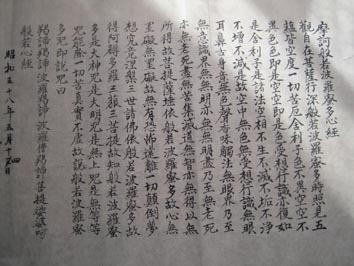 摩訶般若波羅蜜多心経
觀自在菩薩行深般若波羅蜜多時照見五
蘊皆空度一切苦厄舎利子色不異空空不
異色色即是空空即是色受想行識亦復如
是舎利子是諸法空相不生不滅不垢不浄
不増不減是故空中無色無受想行識無眼
耳鼻舌身意無色聲香味觸法無眼界乃至
無意識界無無明亦無無明盡乃至無老死
亦無老死盡無苦集滅道無智亦無得以無
所得故菩提薩埵依般若波羅蜜多故心無
罣礙無罣礙故無有恐怖遠離一切顛倒夢
想究竟涅槃三世諸佛依般若波羅蜜多故
得阿耨多羅三藐三菩提故知般若波羅蜜
多是大神呪是大明呪是無上呪是無等等
呪能除一切苦真實不虚故説般若波羅蜜
多呪即説呪曰
羯諦羯諦波羅羯諦波羅僧羯諦菩提娑婆訶
般若心経
昭和五十八年五月十日